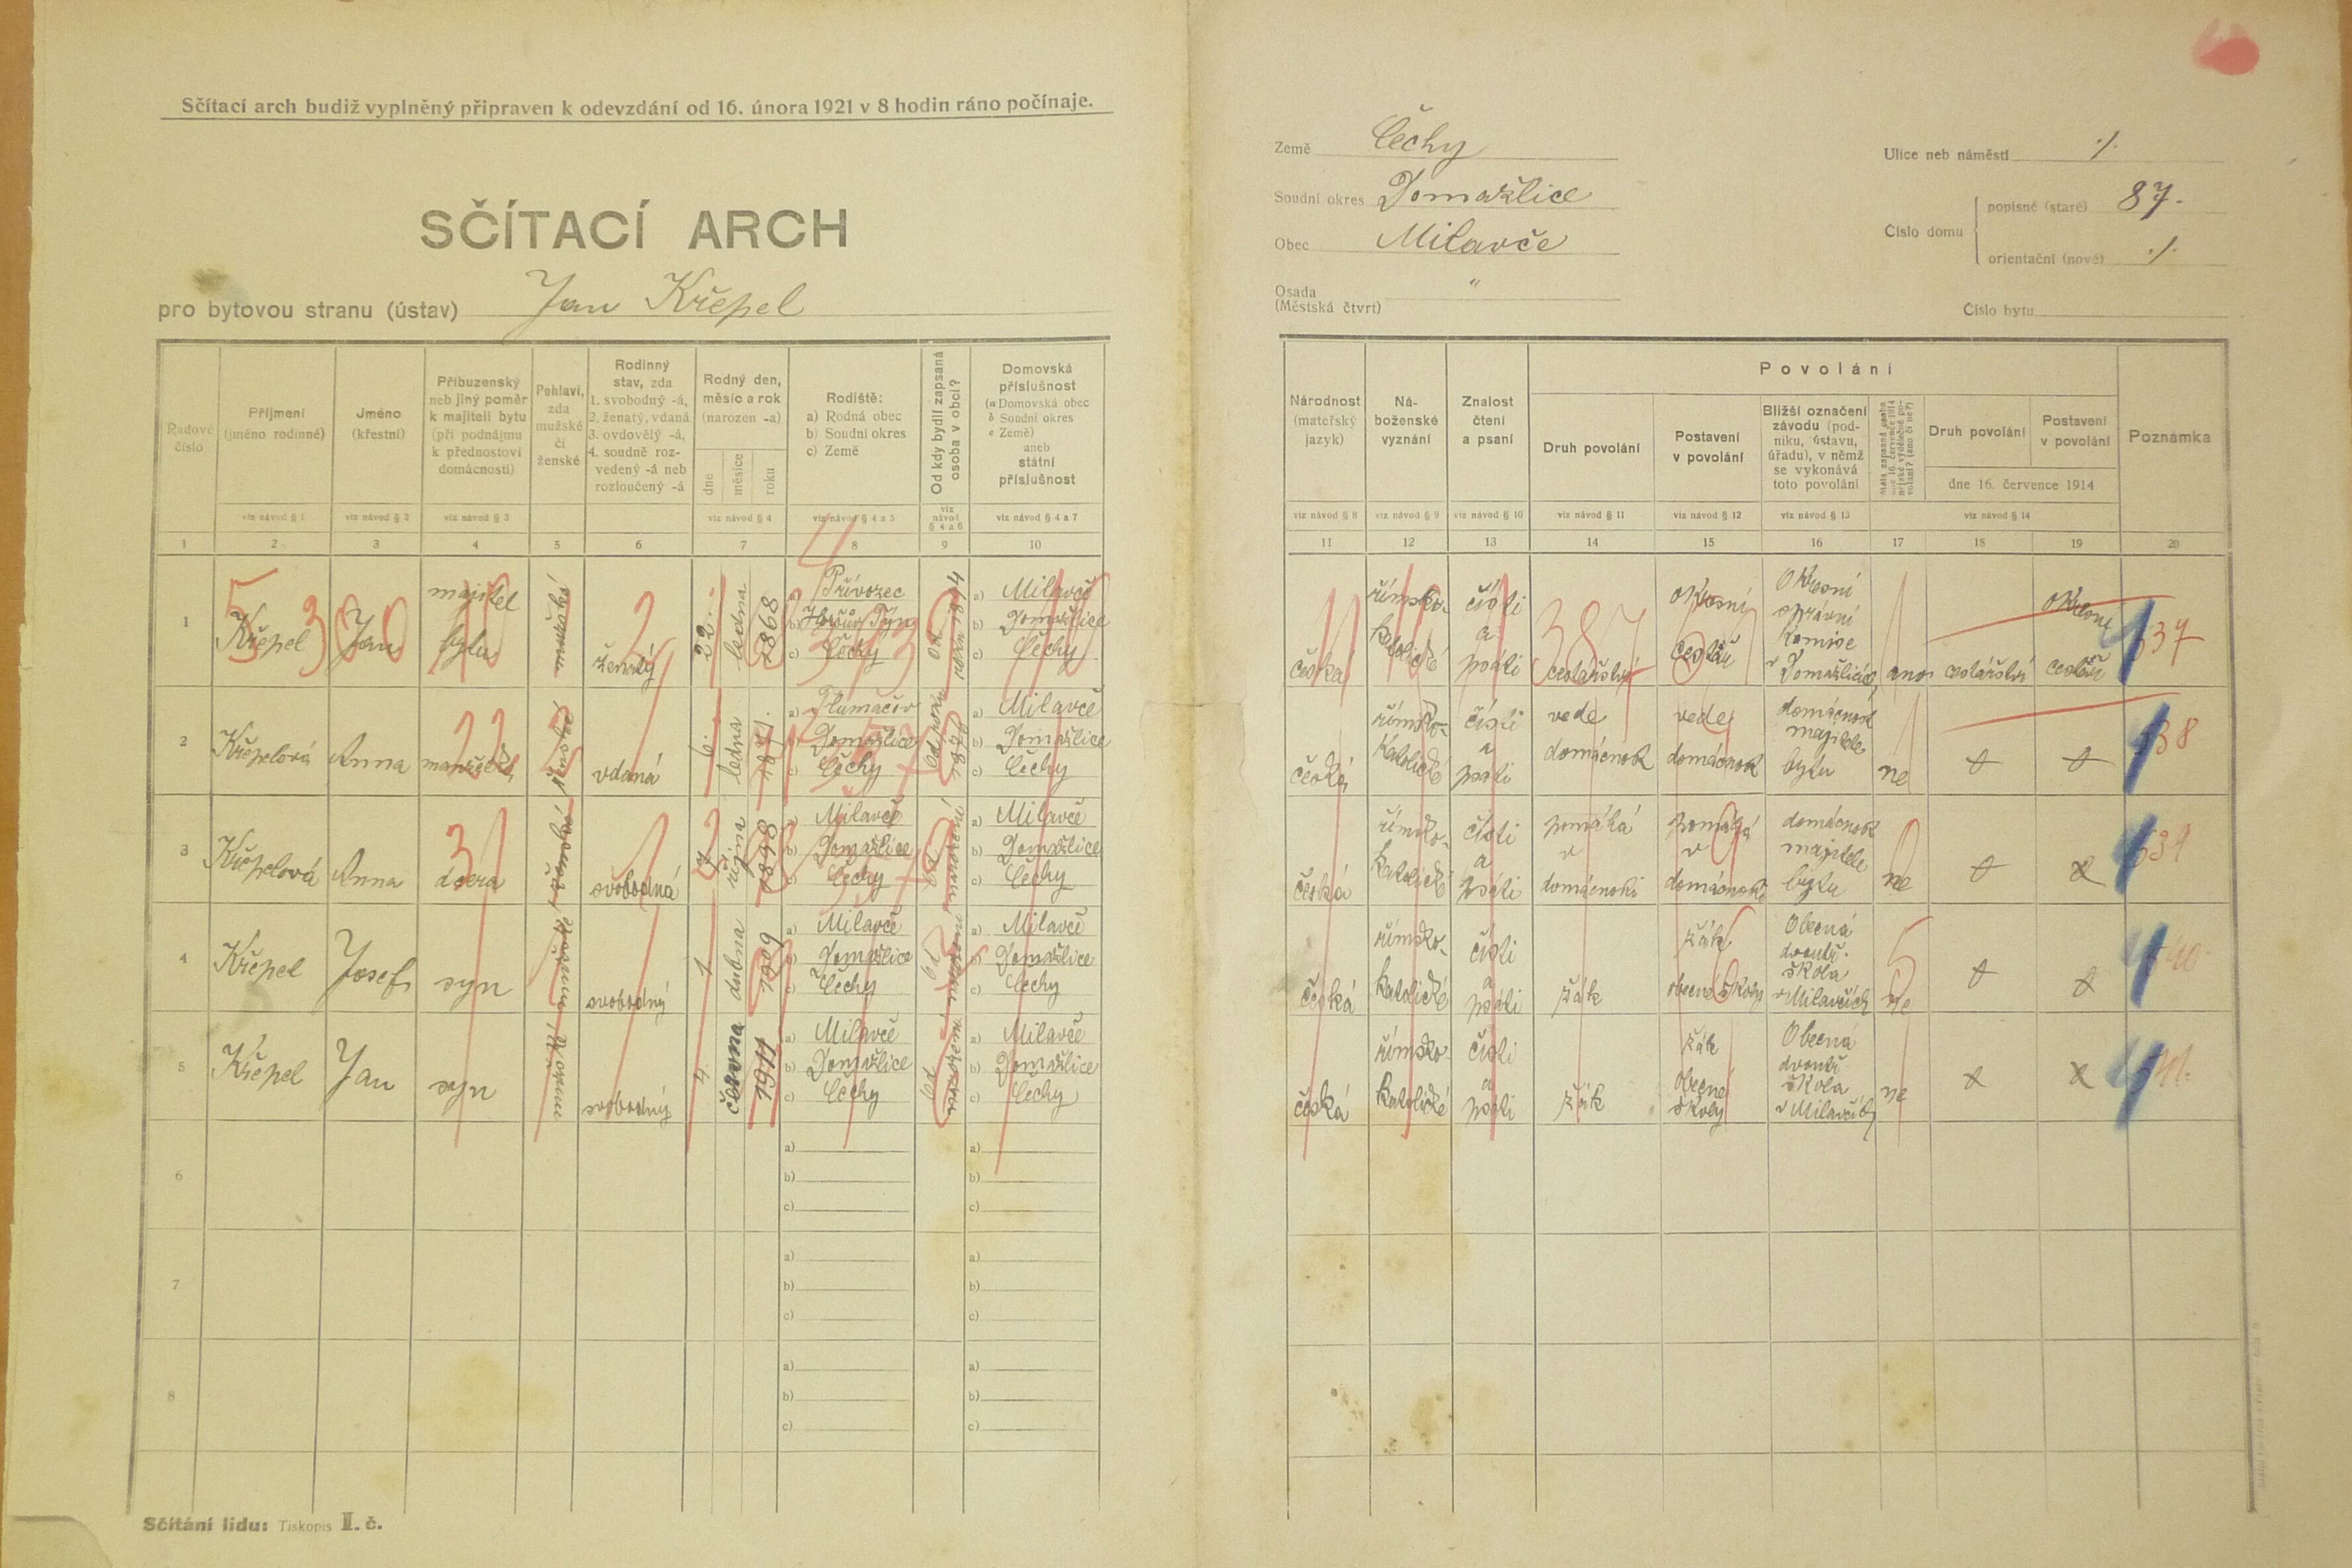 Sčítací arch budiž vyplněný připraven k odevzdání od 16. února 1921 v 8 hodin ráno počínaje.
SČÍTACÍ ARCH
pro bytovou stranu (ústav) Jan Křepel
Země Čechy
Soudní okres Domažlice
Obec Milavče
Osada "
(Městská čtvrt)
Ulice neb náměstí ./.
Číslo domu
popisné (staré) 87.
orientační (nové) ./.
Číslo bytu
Řadové číslo
Příjmení
(jméno rodinné)
Jméno
(křestní)
Příbuzenský
neb jiný poměr
k majiteli bytu
(při podnájmu
k přednostovi
domácnosti)
Pohlaví,
zda
mužské
či
ženské
Rodinný
stav, zda
1. svobodný -á,
2. ženatý, vdaná
3. ovdovělý -á,
4. soudně roz-
vedený -á neb
rozloučený -á
Rodný den,
měsíc a rok
(narozen -a)
dne
měsíce
roku
Rodiště:
a) Rodná obec
b) Soudní okres
c) Země
Od kdy bydlí zapsaná
osoba v obci?
Domovská
příslušnost
(a Domovská obec
b Soudní okres
c Země)
aneb
státní
příslušnost
viz návod § 1
viz návod § 2
viz návod § 3
viz návod § 4
viz návod § 4 a 5
viz
návod
§ 4 a 6
viz návod § 4 a 7
1 2 3 4 5 6 7 8 9 10
Národnost
(mateřský
jazyk)
Ná-
boženské
vyznání
Znalost
čtení
a psaní
Povolání
Druh povolání
Postavení
v povolání
Bližší označení
závodu (pod-
niku, ústavu,
úřadu), v němž
se vykonává
toto povolání
Měla zapsaná osoba
dne 16. července 1914
nějaké výdělečné po-
volání? (ano či ne?)
Druh povolání
Postavení
v povolání
dne 16. července 1914
Poznámka
viz návod § 8
viz návod § 9
viz návod § 10
viz návod § 11
viz návod § 12
viz návod § 13
viz návod § 14
11 12 13 14 15 16 17 18 19 20
1
Křepel
Jan
majitel
bytu
ženatý
22.
ledna
1868
a) Přívozec
b) Horšův Týn
c) Čechy
a) Milavče
b) Domažlice
c) Čechy
česká
římsko-
katolické
čísti
a
psáti
387
cestářství
okresní
cestář
Okresní
správní
komise
v Domažlicích
ano
cestářství
okresní
cestář
537
2
Křepelová
Anna
manželka
vdaná
6.
ledna
a) Tlumačov
b) Domažlice
c) Čechy
od roku
a) Milavče
b) Domažlice
c) Čechy
česká
římsko-
katolické
čísti
a
psáti
vede
domácnost
vede
domácnost
domácnost
majitele
bytu
ne
538
3
Křepelová
Anna
dcera
svobodná
října
1898
a) Milavče
b) Domažlice
c) Čechy
od narození
a) Milavče
b) Domažlice
c) Čechy
česká
římsko-
katolické
čísti
a
psáti
pomáhá
v
domácnosti
pomáhá
v
domácnosti
domácnost
majitele
bytu
ne
539
4
Křepel
Josef
syn
svobodný
1.
dubna
1909
a) Milavče
b) Domažlice
c) Čechy
od narození
a) Milavče
b) Domažlice
c) Čechy
česká
římsko-
katolické
čísti
a
psáti
žák
žák
obecné školy
Obecná
dvoutř.
škola
v Milavčích
ne
540
5
Křepel
Jan
syn
svobodný
4.
června
1911
a) Milavče
b) Domažlice
c) Čechy
od narození
a) Milavče
b) Domažlice
c) Čechy
česká
římsko-
katolické
čísti
a
psáti
žák
žák
obecné
školy
Obecná
dvoutř.
škola
v Milavčích
ne
541
6
a)
b)
c)
a)
b)
c)
7
a)
b)
c)
a)
b)
c)
8
a)
b)
c)
a)
b)
c)
Sčítání lidu: Tiskopis II. č.